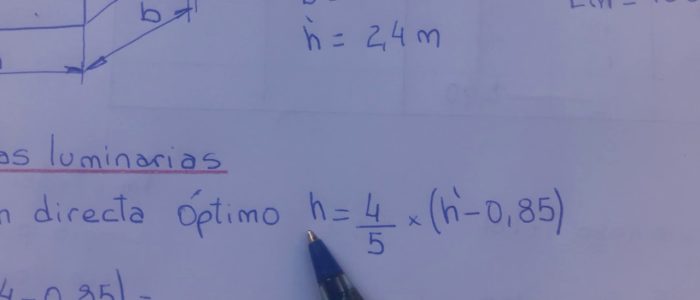 b
h' = 2,4 m
as luminarias
n directa óptimo h = 4/5 × (h' - 0,85)
4 - 0,85) =